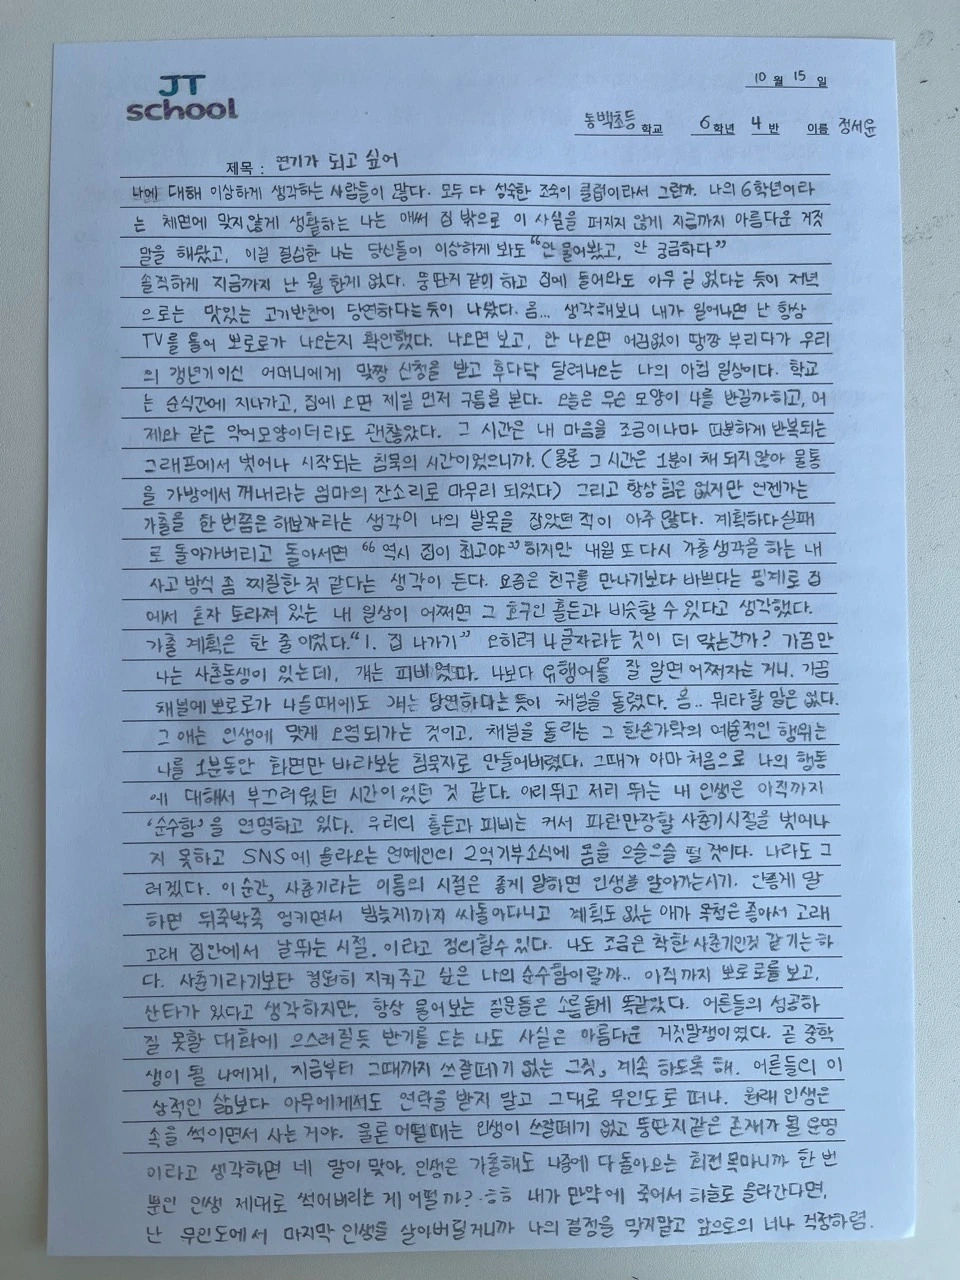 JT
school
10 월 15 일
동백초등 학교 6 학년 4 반 이름 정서윤
제목 : 연기가 되고 싶어
나에 대해 이상하게 생각하는 사람들이 많다. 모두 다 성숙한 조숙이 클럽이라서 그런가. 나의 6학년이라
는 체면에 맞지 않게 생활하는 나는 애써 집 밖으로 이 사실을 퍼지지 않게 지금까지 아름다운 거짓
말을 해왔고, 이걸 결심한 나는 당신들이 이상하게 봐도 "안 물어봤고, 안 궁금하다"
솔직하게 지금까지 난 뭘 한게 없다. 뚱딴지 같이 하고 집에 들어와도 아무 일 없다는 듯이 저녁
으로는 맛있는 고기반찬이 당연하다는 듯이 나왔다. 음... 생각해보니 내가 일어나면 난 항상
TV를 틀어 뽀로로가 나오는지 확인했다. 나오면 보고, 안 나오면 어김없이 땡깡 부리다가 우리
의 갱년기이신 어머니에게 맞짱 신청을 받고 후다닥 달려나오는 나의 아침 일상이다. 학교
는 순식간에 지나가고, 집에 오면 제일 먼저 구름을 본다. 오늘은 무슨 모양이 나를 반길까하고, 어
제와 같은 악어모양이더라도 괜찮았다. 그 시간은 내 마음을 조금이나마 따분하게 반복되는
그래프에서 벗어나 시작되는 침묵의 시간이었으니까. (물론 그 시간은 1분이 채 되지 않아 물통
을 가방에서 꺼내라는 엄마의 잔소리로 마무리 되었다) 그리고 항상 힘은 없지만 언젠가는
가출을 한 번쯤은 해보자라는 생각이 나의 발목을 잡았던 적이 아주 많다. 계획하다 실패
로 돌아가버리고 돌아서면 "역시 집이 최고야" 하지만 내일 또 다시 가출 생각을 하는 내
사고 방식 좀 찌질한 것 같다는 생각이 든다. 요즘은 친구를 만나기보다 바쁘다는 핑계로 집
에서 혼자 토라져 있는 내 일상이 어쩌면 그 호구인 홀든과 비슷할 수 있다고 생각했다.
가출 계획은 한 줄이었다. "1. 집 나가기" 오히려 나글자라는 것이 더 맞는건가? 가끔만
나는 사촌동생이 있는데, 걔는 피비였다. 나보다 유행어를 잘 알면 어쩌자는 거니. 가끔
채널에 뽀로로가 나올때에도 걔는 당연하다는 듯이 채널을 돌렸다. 음.. 뭐라 할 말은 없다.
그 애는 인생에 맞게 오염되가는 것이고, 채널을 돌리는 그 한손가락의 예술적인 행위는
나를 1분동안 화면만 바라보는 침묵자로 만들어버렸다. 그때가 아마 처음으로 나의 행동
에 대해서 부끄러웠던 시간이었던 것 같다. 이리 뛰고 저리 뛰는 내 인생은 아직까지
'순수함'을 연명하고 있다. 우리의 홀든과 피비는 커서 파란만장할 사춘기시절을 벗어나
지 못하고 SNS에 올라오는 연예인의 2억기부소식에 몸을 으슬으슬 떨 것이다. 나라도 그
러겠다. 이 순간, 사춘기라는 이름의 시절은 좋게 말하면 인생을 알아가는시기. 안좋게 말
하면 뒤죽박죽 엉키면서 밤늦게까지 싸돌아다니고 계획도 없는 애가 목청은 좋아서 고래
고래 집안에서 날뛰는 시절. 이라고 정의할수 있다. 나도 조금은 착한 사춘기인것 같기는 하
다. 사춘기라기보단 영원히 지켜주고 싶은 나의 순수함이랄까.. 아직까지 뽀로로를 보고,
산타가 있다고 생각하지만, 항상 물어보는 질문들은 소름돋게 똑같았다. 어른들의 성공하
질 못할 대화에 으스러질듯 반기를 드는 나도 사실은 아름다운 거짓말쟁이였다. 곧 중학
생이 될 나에게, 지금부터 그때까지 쓰잘떼기 없는 그짓, 계속 하도록 해. 어른들의 이
상적인 삶보다 아무에게서도 연락을 받지 말고 그대로 무인도로 떠나. 원래 인생은
속을 썩이면서 사는 거야. 물론 어떨때는 인생이 쓰잘떼기 없고 뚱딴지같은 존재가 될 운명
이라고 생각하면 네 말이 맞아. 인생은 가출해도 나중에 다 돌아오는 회전 목마니까 한 번
뿐인 인생 제대로 썩어버리는 게 어떨까? ㅎㅎ 내가 만약에 죽어서 하늘로 올라간다면,
난 무인도에서 마지막 인생을 살아버릴거니까 나의 결정을 막지말고 앞으로의 너나 걱정하렴.